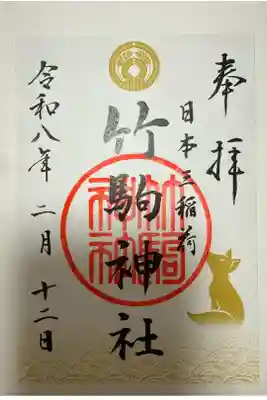 奉拝
日本三稲荷
竹駒神社
令和八年 二月 十二日
竹駒神社